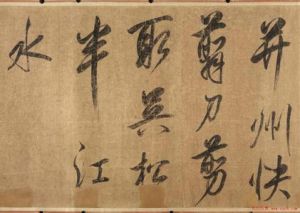 并州快
剪刀剪
取吴松
半江
水